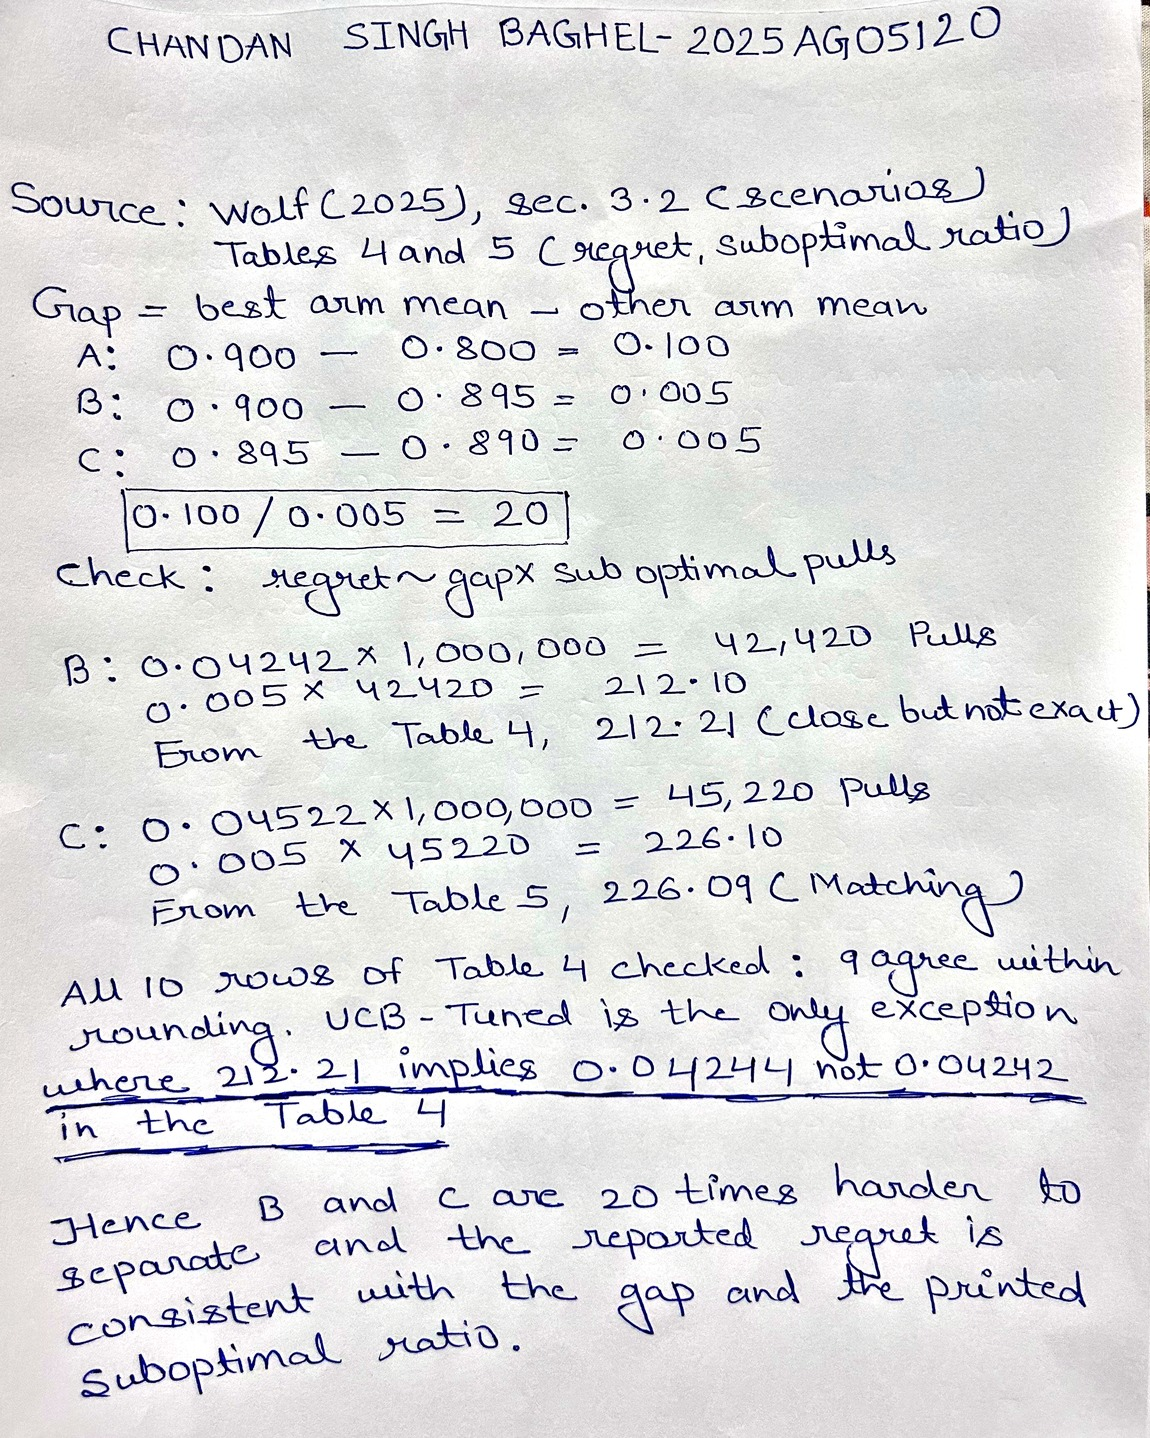 CHANDAN SINGH BAGHEL- 2025AG05120
Source: Wolf (2025), sec. 3.2 (scenarios)
Tables 4 and 5 (regret, suboptimal ratio)
Gap = best arm mean - other arm mean
A: 0.900 - 0.800 = 0.100
B: 0.900 - 0.895 = 0.005
C: 0.895 - 0.890 = 0.005
0.100 / 0.005 = 20
Check: regret ~ gap x suboptimal pulls
B: 0.04242 x 1,000,000 = 42,420 Pulls
0.005 x 42420 = 212.10
From the Table 4, 212.21 (close but not exact)
C: 0.04522 x 1,000,000 = 45,220 Pulls
0.005 x 45220 = 226.10
From the Table 5, 226.09 (Matching)
All 10 rows of Table 4 checked: 9 agree within
rounding. UCB-Tuned is the only exception
where 212.21 implies 0.04244 not 0.04242
in the Table 4
Hence B and C are 20 times harder to
separate and the reported regret is
consistent with the gap and the printed
suboptimal ratio.